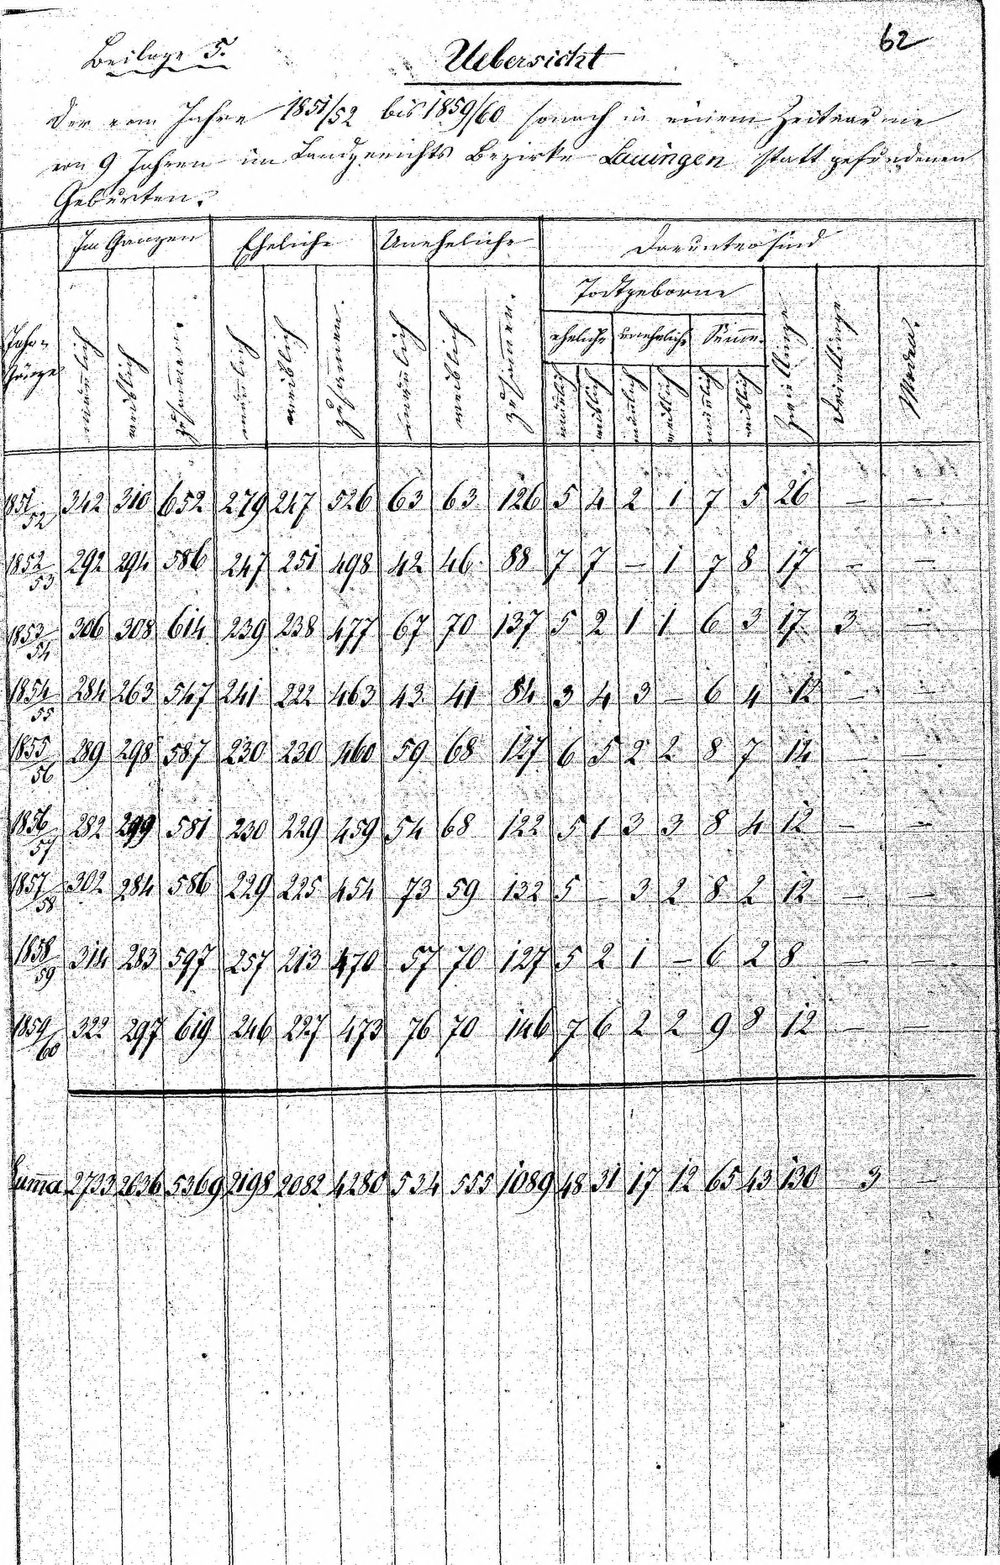 62
Beilage 5.
Uebersicht
Der vom Jahre 1851/52 bis 1859/60 sonach in einem Zeitraume
von 9 Jahren im Landgerichts Bezirke Lauingen statt gefundenen
Geburten.
Jahr-
gänge
Im Ganzen Eheliche Uneheliche Darunter sind
Todtgeborne
eheliche uneheliche Summe.
männlich weiblich zusammen. männlich weiblich zusammen. männlich weiblich zusammen. männlich weiblich männlich weiblich männlich weiblich Zwillinge Drillinge
1851/52 342 310 652 279 247 526 63 63 126 5 4 2 1 7 5 26 — —
1852/53 292 294 586 247 251 498 42 46 88 7 7 — 1 7 8 17 — —
1853/54 306 308 614 239 238 477 67 70 137 5 2 1 1 6 3 17 3 —
1854/55 284 263 547 241 222 463 43 41 84 3 4 3 — 6 4 12 — —
1855/56 289 298 587 230 230 460 59 68 127 6 5 2 2 8 7 14 — —
1856/57 282 299 581 230 229 459 54 68 122 5 1 3 3 8 4 12 — —
1857/58 302 284 586 229 225 454 73 59 132 5 — 3 2 8 2 12 — —
1858/59 314 283 597 257 213 470 57 70 127 5 2 1 — 6 2 8 — —
1859/60 322 297 619 246 227 473 76 70 146 7 6 2 2 9 8 12 — —
Summa 2733 2636 5369 2198 2082 4280 534 555 1089 48 31 17 12 65 43 130 3 —